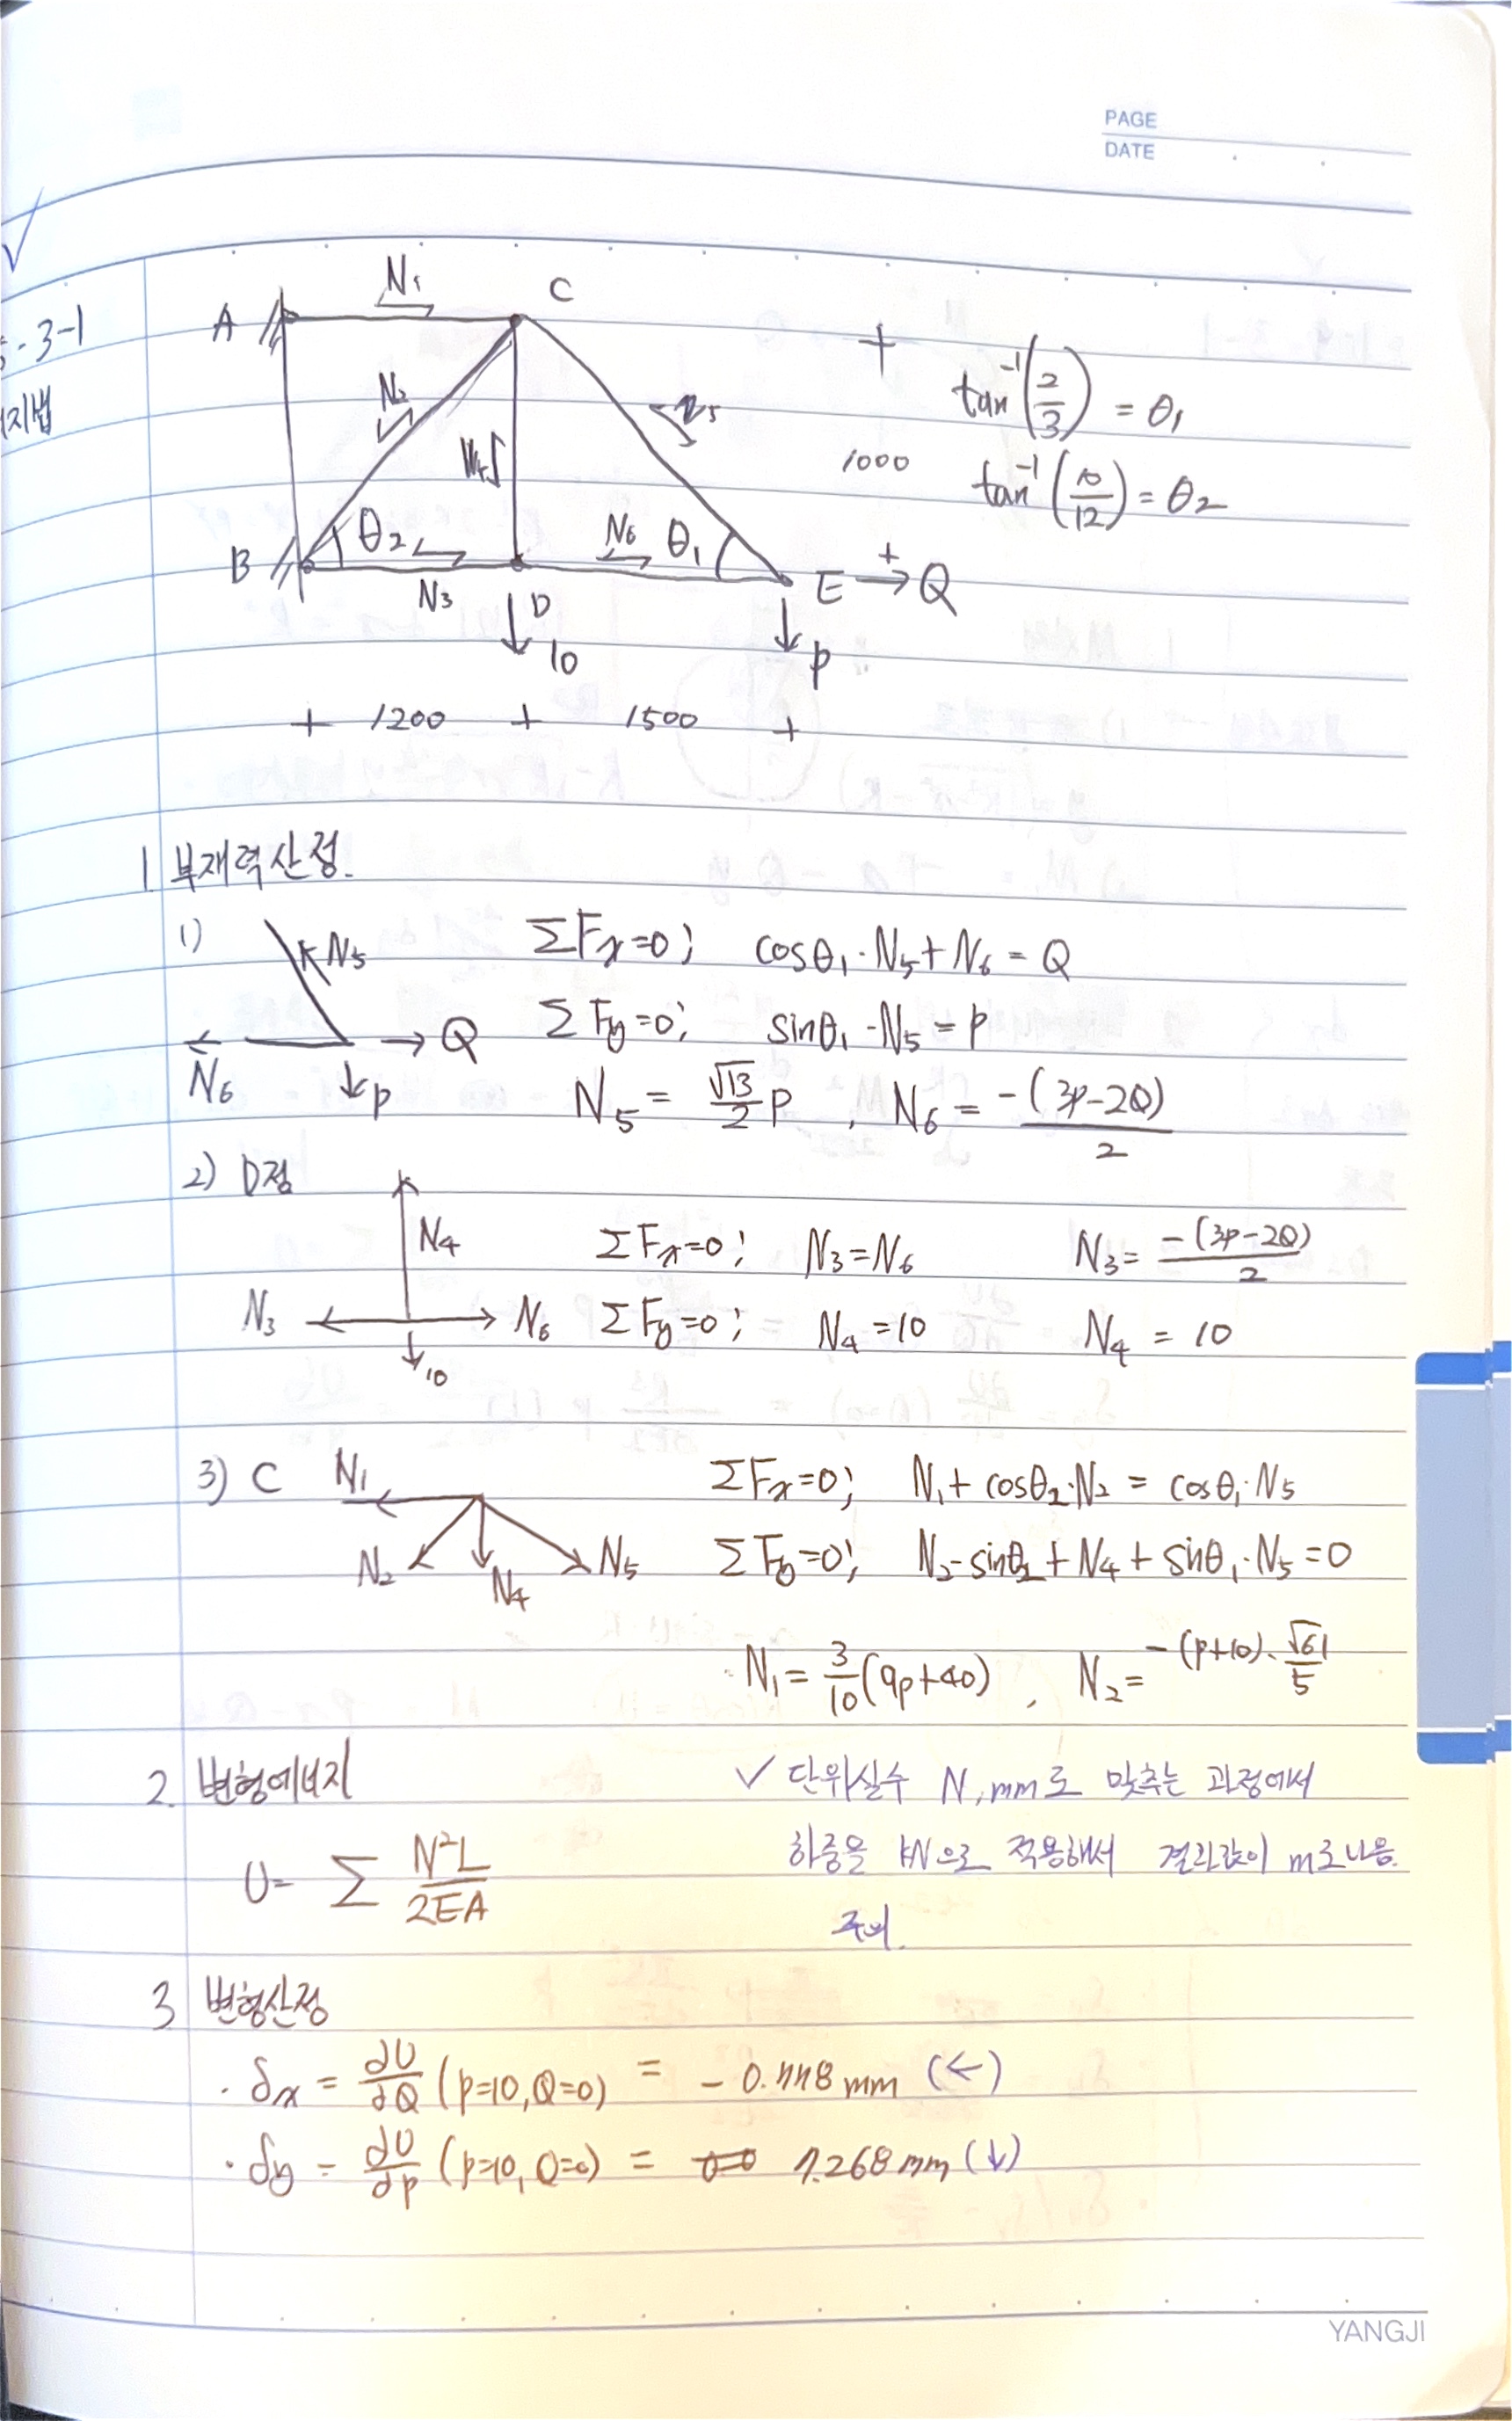 PAGE
DATE
-3-1
지법
A
N₁
C
N₂
N₄
N₅
1000
tan⁻¹(2/3) = θ₁
tan⁻¹(10/12) = θ₂
B
θ₂
N₃
D
N₆
θ₁
E
+
Q
10
P
+ 1200 + 1500 +
1 부재력산정.
1)
N₅
N₆
Q
P
ΣFx=0; cosθ₁·N₅+N₆ = Q
ΣFy=0; sinθ₁·N₅ = P
N₅ = √13/2 P , N₆ = -(3P-2Q)/2
2) D점
N₄
N₃
N₆
10
ΣFx=0; N₃=N₆ N₃= -(3P-2Q)/2
ΣFy=0; N₄=10 N₄ = 10
3) C
N₁
N₂
N₄
N₅
ΣFx=0; N₁+cosθ₂·N₂ = cosθ₁·N₅
ΣFy=0; N₂·sinθ₂+N₄+sinθ₁·N₅=0
N₁= 3/10(9P+40) , N₂= -(P+10)·√61/5
2. 변형에너지
✓ 단위실수 N,mm로 맞추는 과정에서
하중을 kN으로 적용해서 결과값이 m로나옴.
주의.
U= Σ N²L/2EA
3 변형산정
· δx = ∂U/∂Q (P=10, Q=0) = - 0.448 mm (←)
· δy = ∂U/∂P (P=10, Q=0) = 1.268 mm (↓)
YANGJI